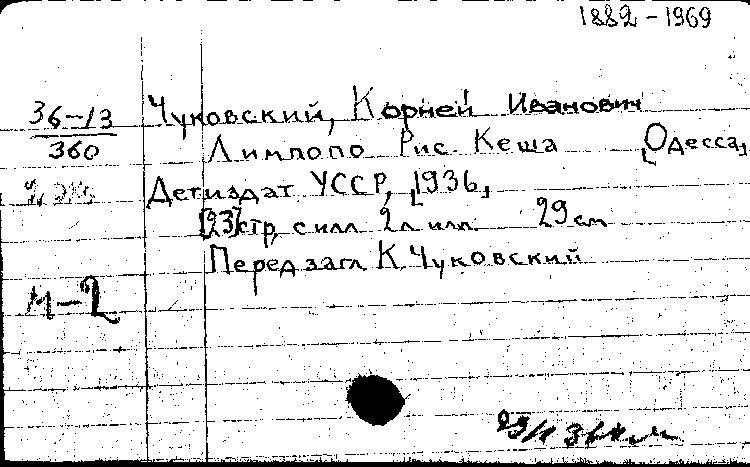 1882-1969
36-13
360
Чуковский, Корней Иванович
Лимпопо Рис. Кеша [Одесса]
Детиздат УССР, [1936]
[23] стр. с илл. 2 л илл. 29 см
Перед загл. К. Чуковский
М-2